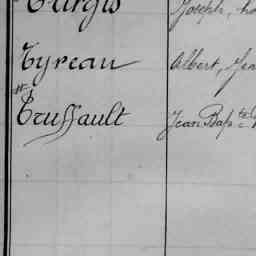 Turgis Joseph,
Tyreau Albert,
Truffault Jean Bapte